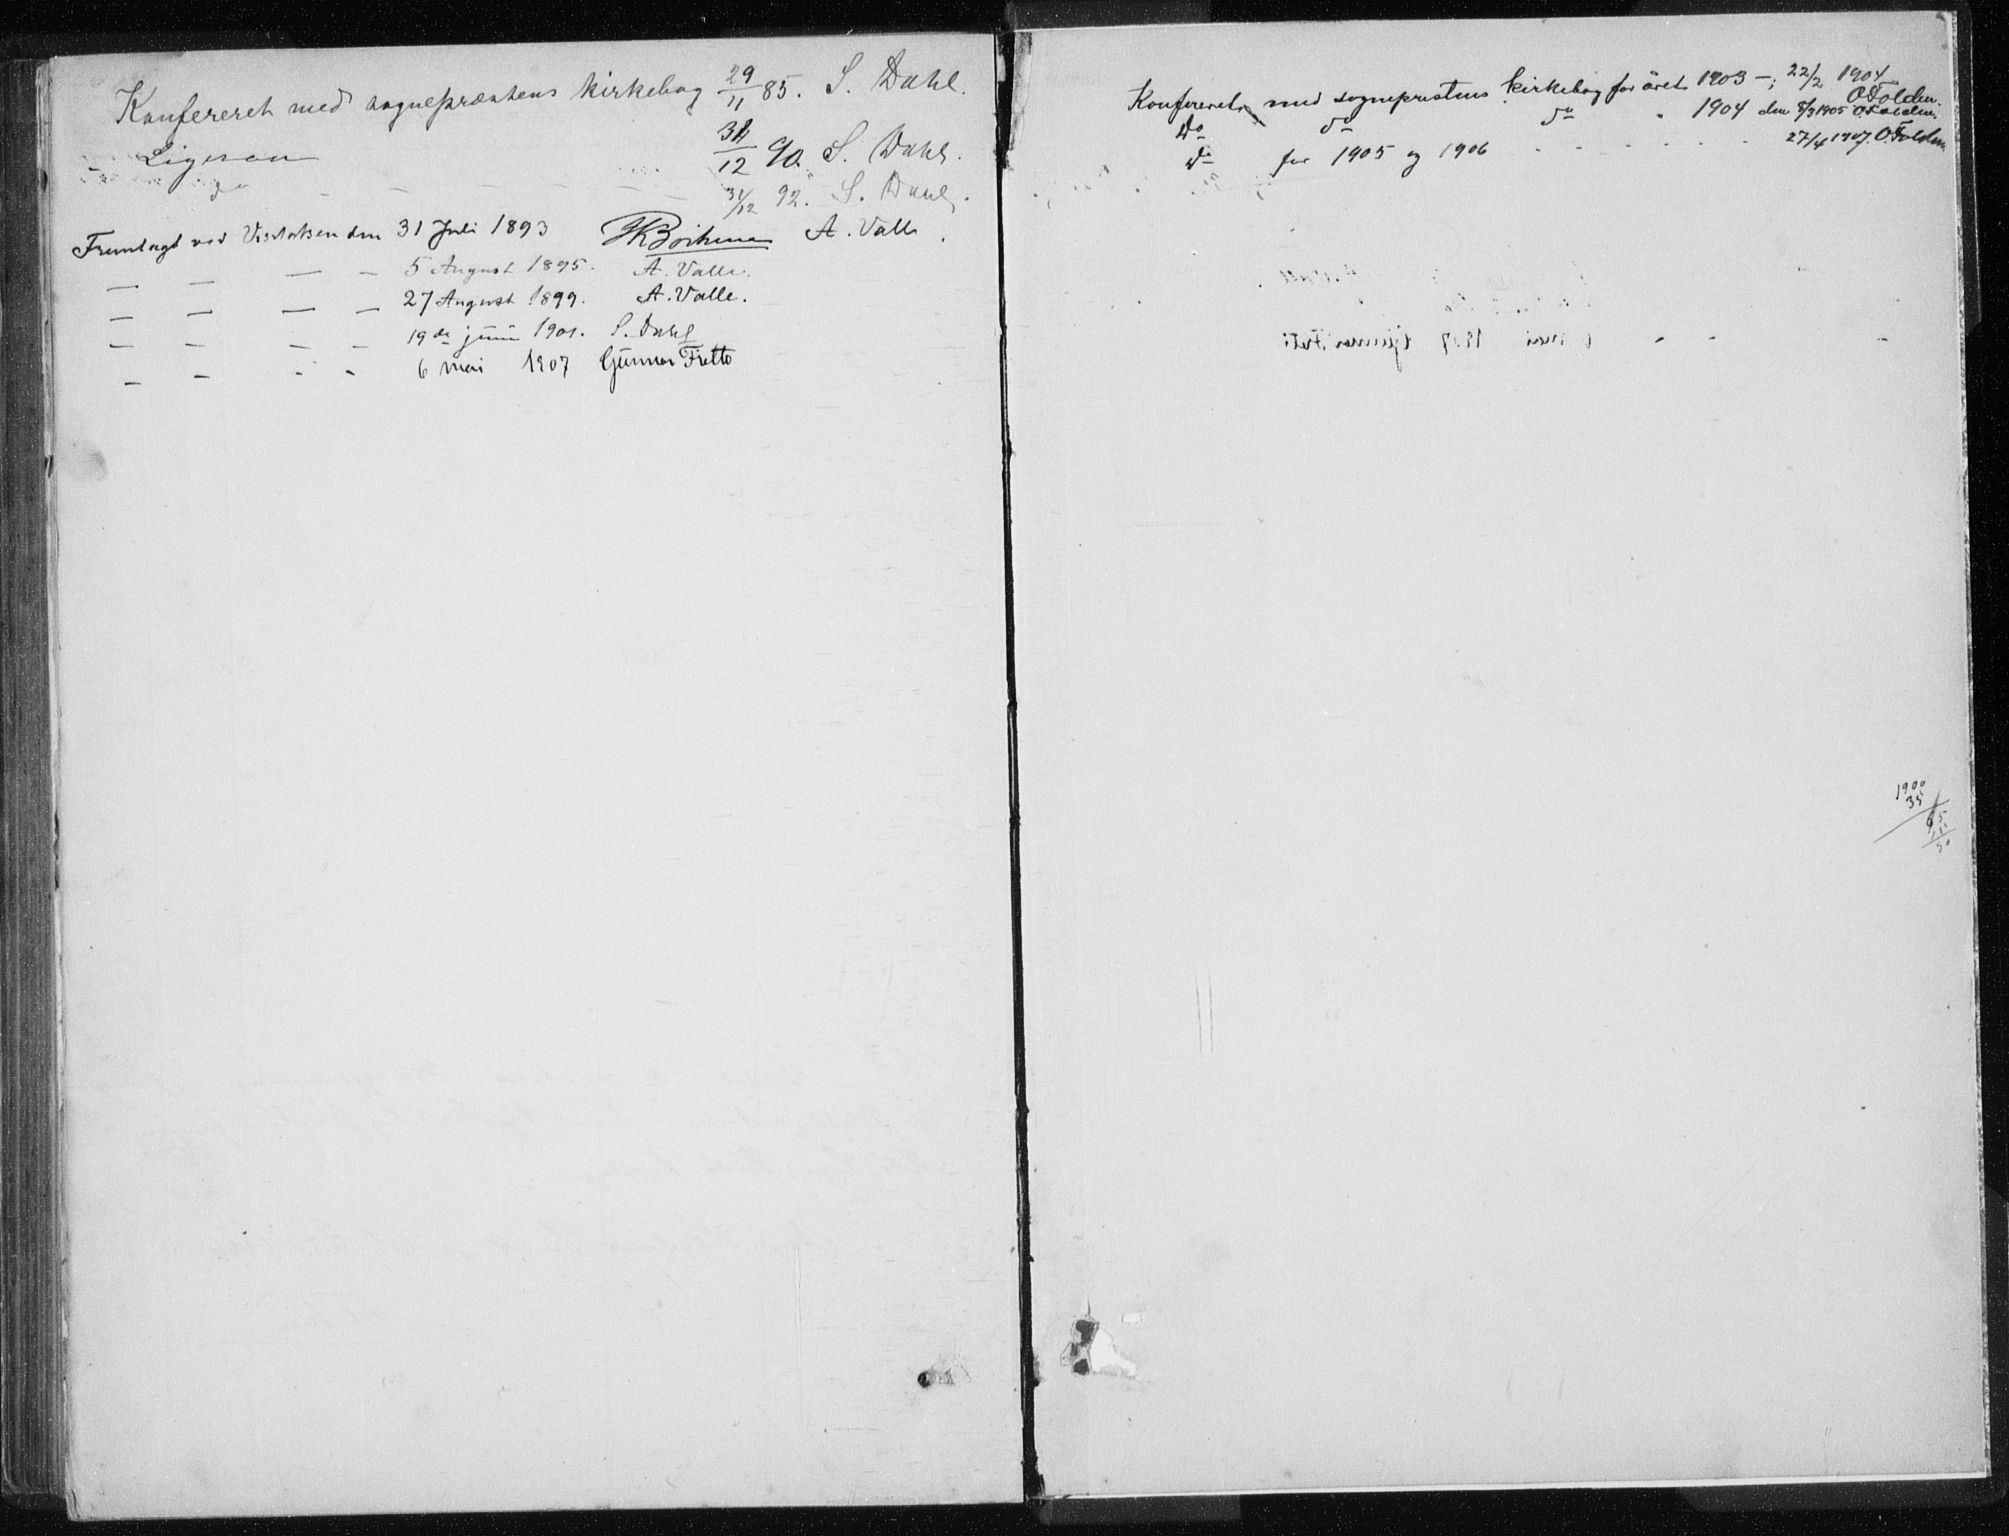 Konfereret med sognepræstens kirkebog 29/11 85. S. Dahl.
Ligesaa 31/12 90. S. Dahl.
do — — — — — 31/12 92. S. Dahl.
Fremlagt ved Visitatsen den 31 Juli 1893 A. Valle.
— — — — 5 August 1895. A. Valle.
— — — — 27 August 1899. A. Valle.
— — — — 19de juni 1901. S. Dahl
— — - - 6 mai 1907 Gunnar Fretto
Konfereret med sogneprestens kirkebog for året 1903 —; 22/2 1904 O Folden.
Do do do " 1904 den 8/3 1905 O Folden.
do for 1905 og 1906 - - - - - - 27/4 1907. O. Folden
1900
35